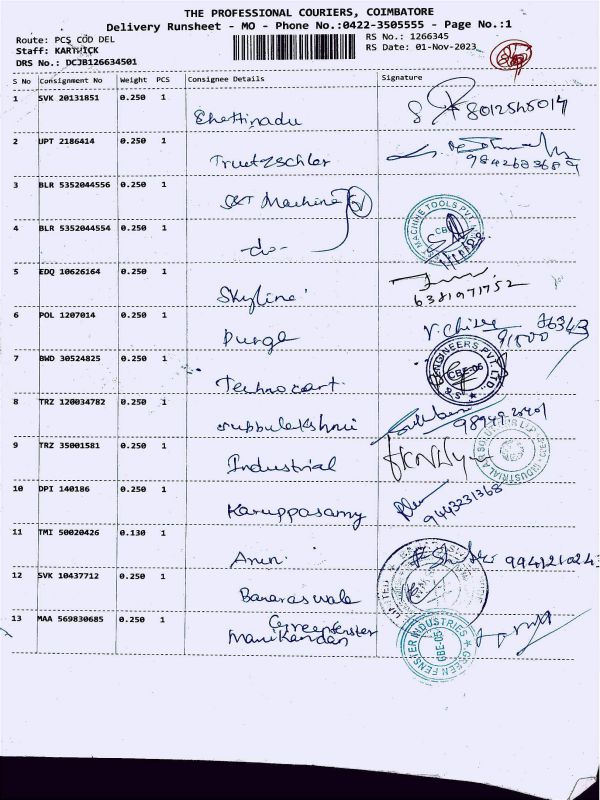 THE PROFESSIONAL COURIERS, COIMBATORE
Delivery Runsheet - MO - Phone No.:0422-3505555 - Page No.:1
Route: PCS COD DEL
RS No.: 1266345
Staff: KARTHICK
RS Date: 01-Nov-2023
DRS No.: DCJB126634501
S No Consignment No Weight PCS Consignee Details Signature
1 SVK 20131851 0.250 1
Chettinadu 8012545014
2 UPT 2186414 0.250 1
Truetzschler
3 BLR 5352044556 0.250 1
S&T Machine
MACHINE TOOLS PVT. CBE
4 BLR 5352044554 0.250 1
-do-
5 EDQ 10626164 0.250 1
Skyline 6381971752
6 POL 1207014 0.250 1
Durga 86343
91500
7 BWD 30524825 0.250 1
Technocart. ENGINEERS PVT. LTD CBE-06
8 TRZ 120034782 0.250 1
subbulakshmi
9 TRZ 35001581 0.250 1
Industrial
INDUSTRIAL
10 DPI 140186 0.250 1
Karuppasamy 9443231368
11 TMI 50020426 0.130 1
Arun
12 SVK 10437712 0.250 1
Banaraswala
LIMITED
13 MAA 569830685 0.250 1
Greenfenster
Manikandan
GREEN FENSTER INDUSTRIES CBE-05